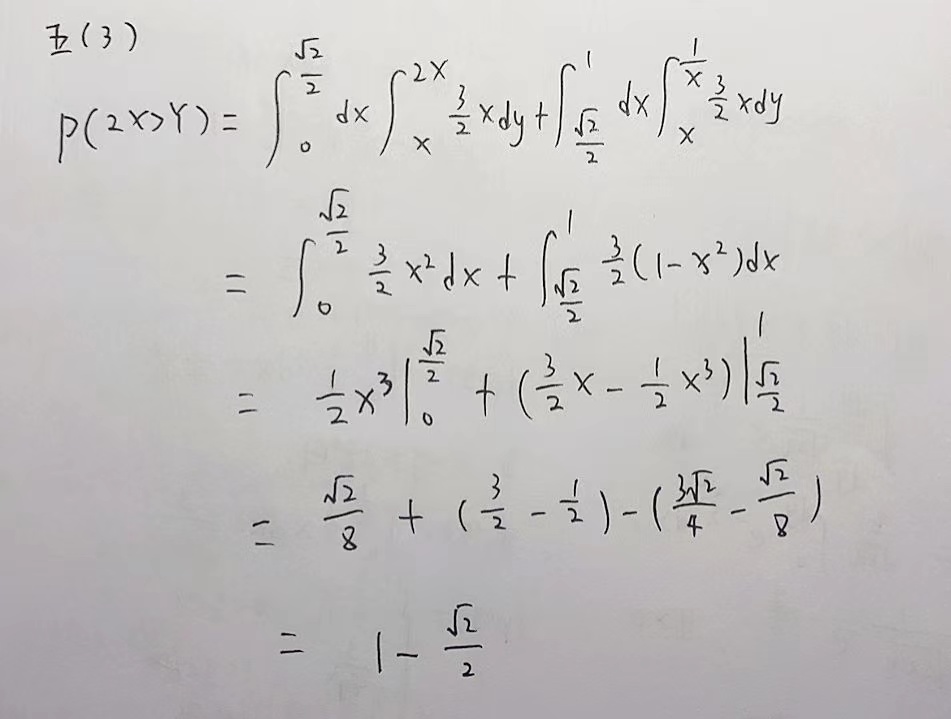 五(3)
P(2X>Y) = ∫_0^{\frac{√2}{2}} dx ∫_x^{2x} \frac{3}{2} x dy + ∫_{\frac{√2}{2}}^1 dx ∫_x^{\frac{1}{x}} \frac{3}{2} x dy
= ∫_0^{\frac{√2}{2}} \frac{3}{2} x^2 dx + ∫_{\frac{√2}{2}}^1 \frac{3}{2} (1 - x^2) dx
= \frac{1}{2} x^3 |_0^{\frac{√2}{2}} + (\frac{3}{2} x - \frac{1}{2} x^3) |_{\frac{√2}{2}}^1
= \frac{√2}{8} + (\frac{3}{2} - \frac{1}{2}) - (\frac{3√2}{4} - \frac{√2}{8})
= 1 - \frac{√2}{2}